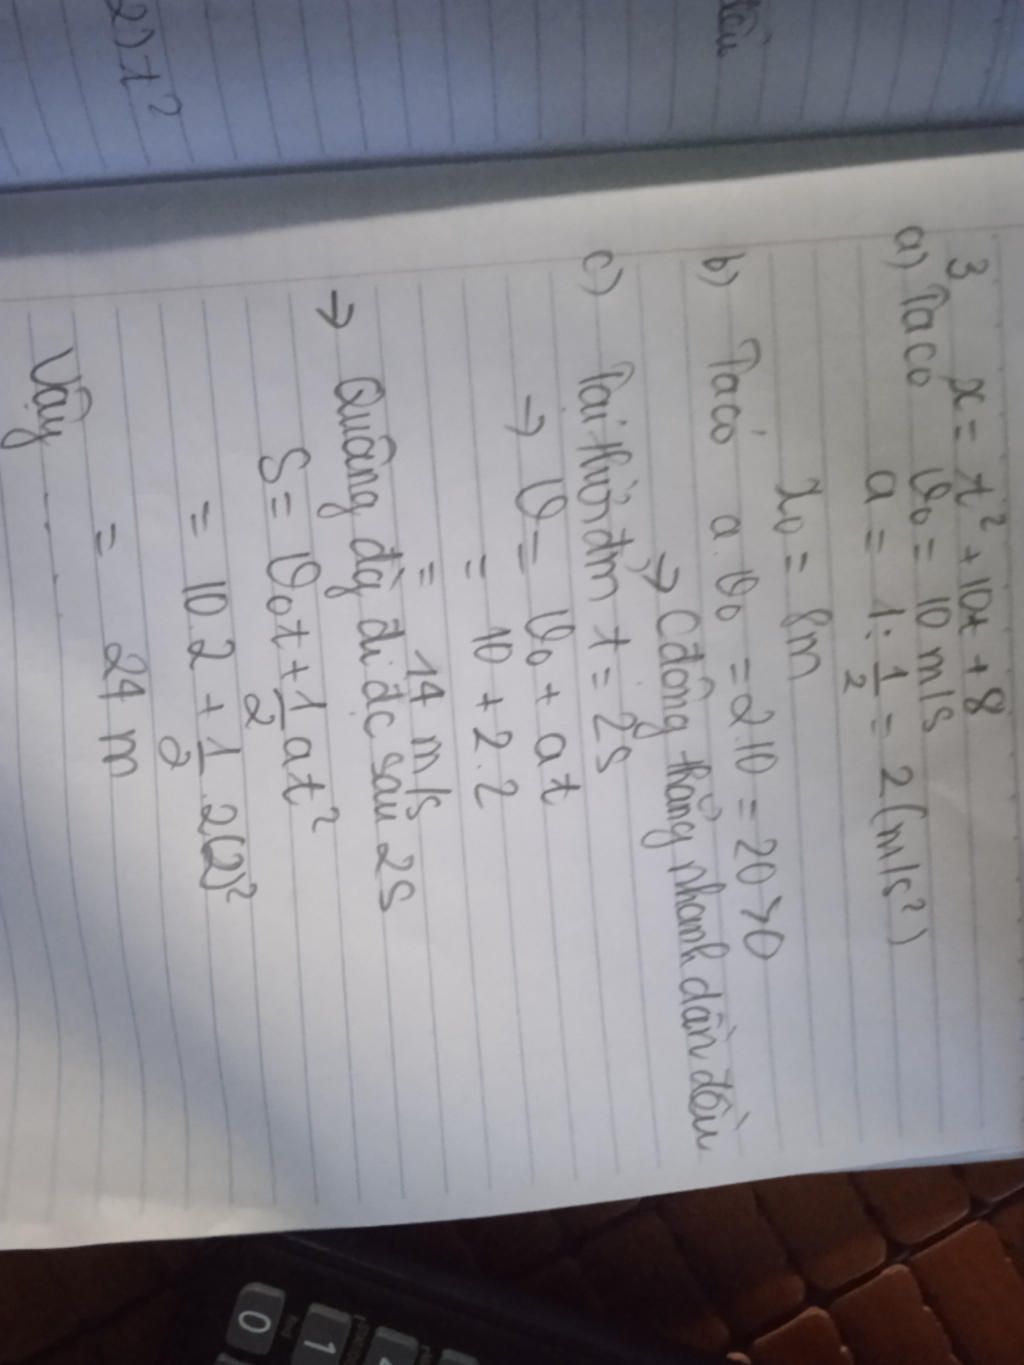 tều
2) t²
3 x = t² + 10t + 8
a) Ta có v₀ = 10 m/s
a = 1 : 1/2 = 2 (m/s²)
x₀ = 8m
b) Ta có a.v₀ = 2.10 = 20 > 0
→ Cđông thẳng nhanh dần đều
c) Tại thời đm t = 2s
→ v = v₀ + at
= 10 + 2.2
= 14 m/s
→ Quãng đg đi đc sau 2s
S = v₀t + 1/2 at²
= 10.2 + 1/2 .2(2)²
= 24 m
Vậy ....
0
1